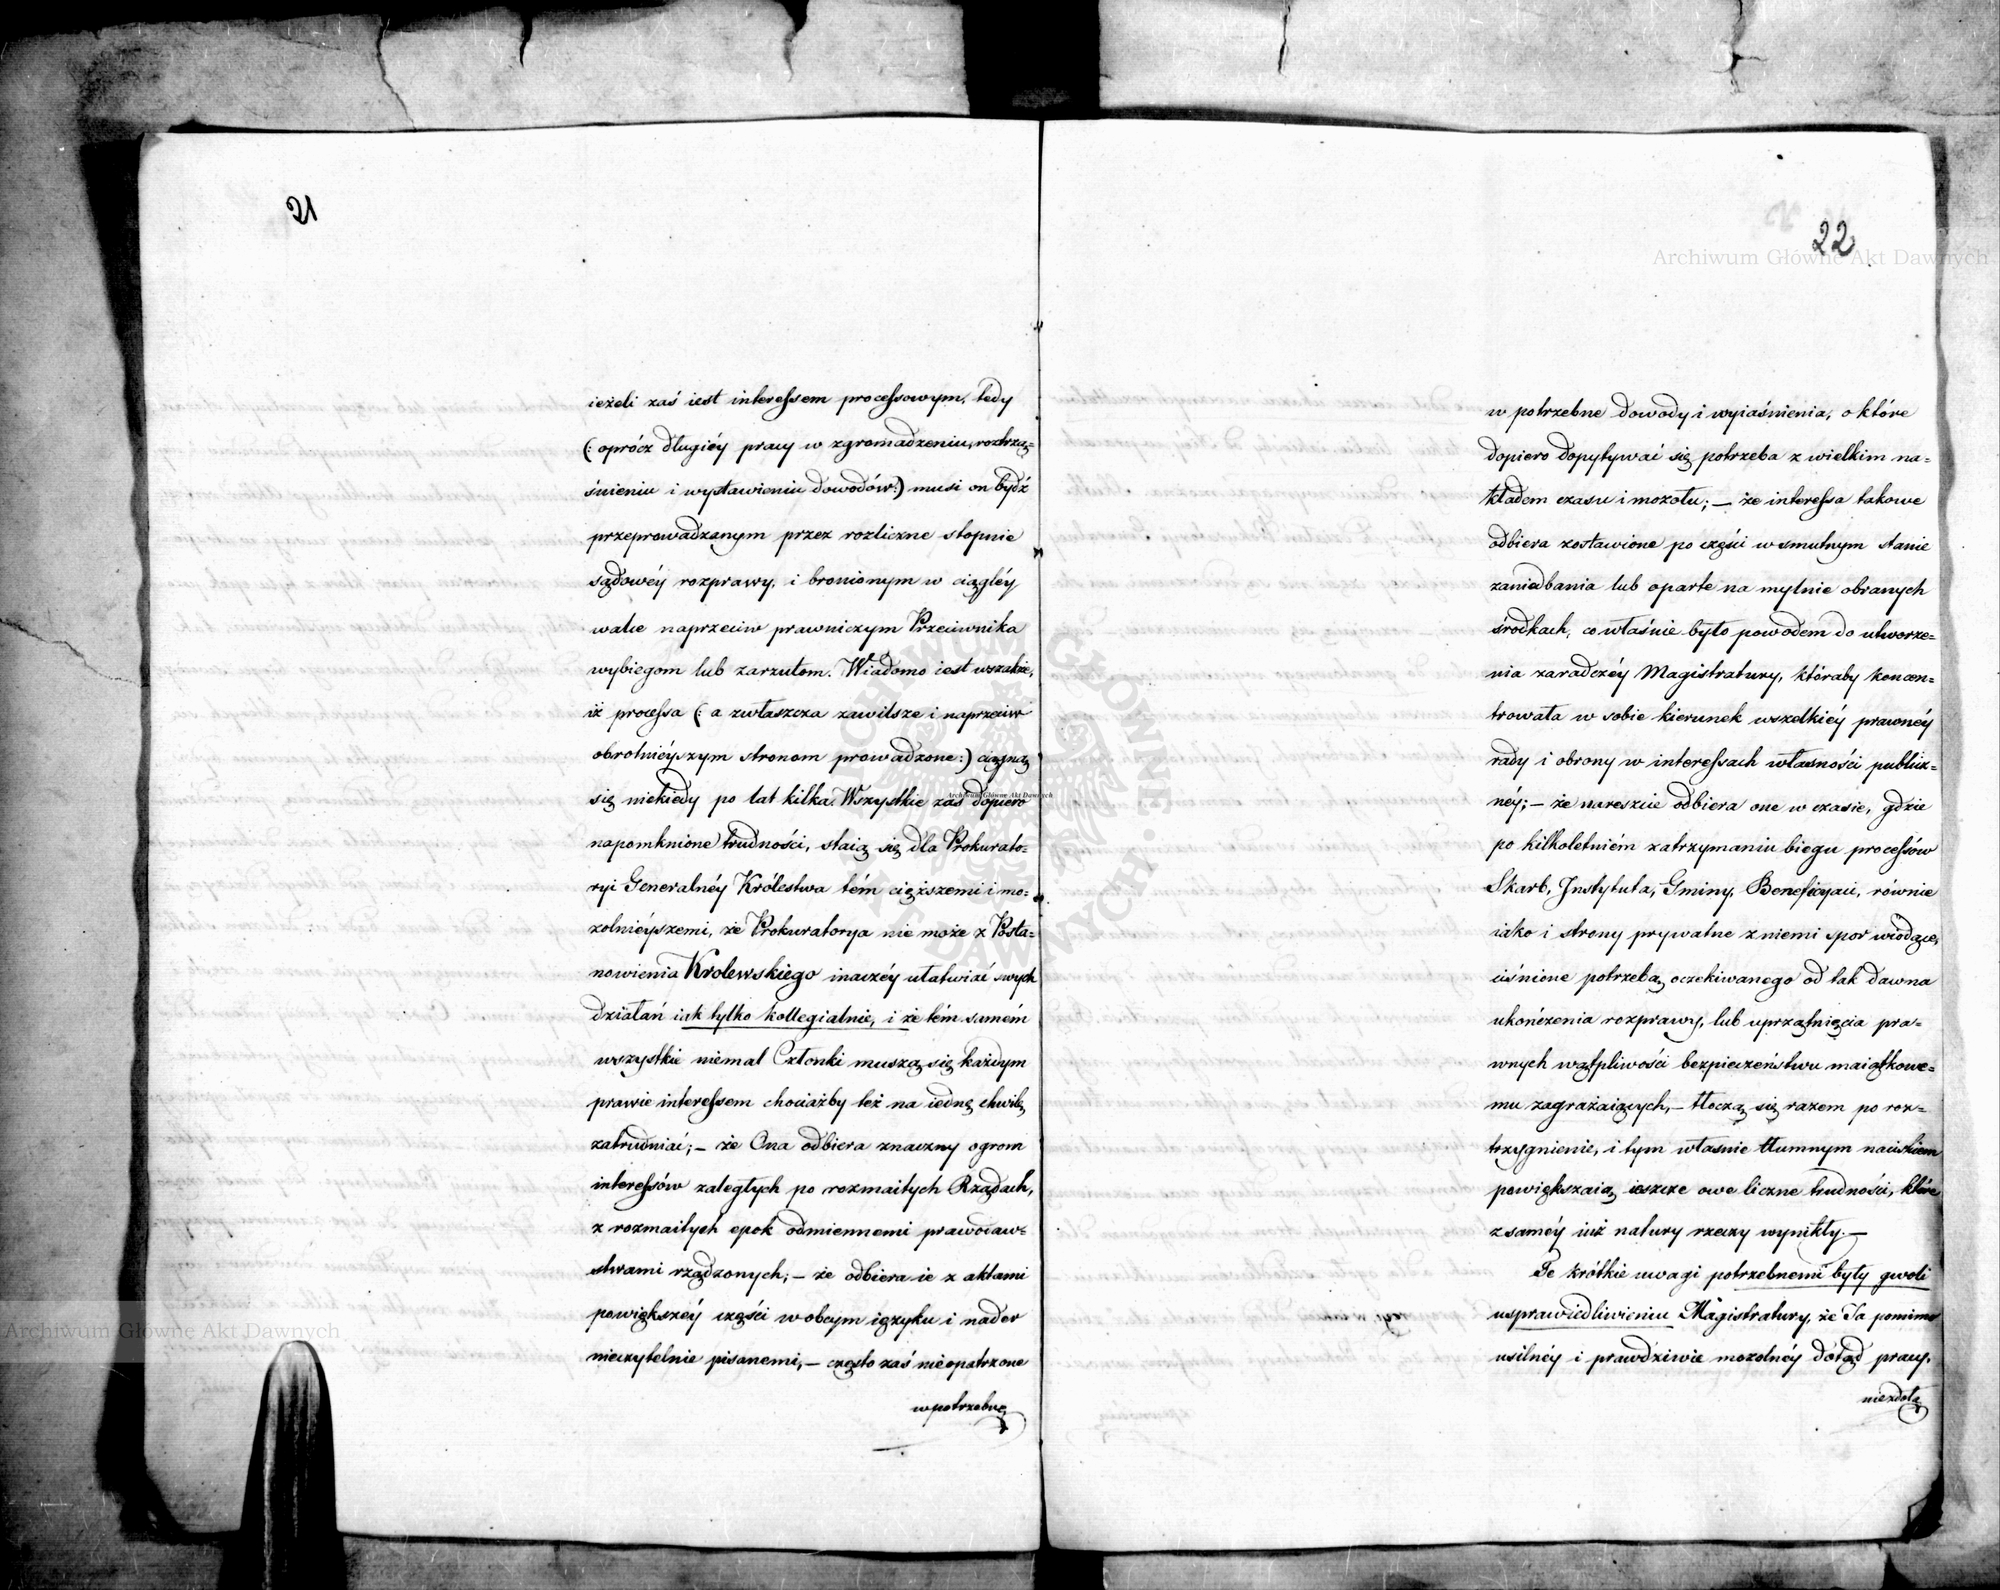 21
ieżeli zaś iest interessem processowym, tedy
(: oprócz długiéy pracy w zgromadzeniu, roztrzą=
śnieniu i wystawieniu dowodów:) musi on bydź
przeprowadzanym przez rozliczne stopnie
sądowéy rozprawy, i bronionym w ciągłéy
walce naprzeciw prawniczym Przeciwnika
wybiegom lub zarzutom. Wiadomo iest wszakże,
iż processa (: a zwłaszcza zawilsze i naprzeciw
obrotniéyszym stronom prowadzone:) ciągną
się niekiedy po lat kilka. Wszystkie zaś dopiero
napomknione trudności, staią się dla Prokurato=
ryi Generalnéy Królestwa tém cięższemi i mo=
zolniéyszemi, że Prokuratorya nie może z Posta=
nowienia Krolewskiego inaczéy ułatwiać swych
działań iak tylko kollegialnie, i że tém samém
wszystkie niemal Członki muszą się każdym
prawie interessem chociażby też na iedną chwilę
zatrudniać; – że Ona odbiera znaczny ogrom
interessów zaległych po rozmaitych Rządach,
z rozmaitych epok odmiennemi prawodaw=
stwami rządzonych; – że odbiera ie z aktami
powiększéy części w obcym ięzyku i nader
nieczytelnie pisanemi, – często zaś nieopatrzone
w potrzebne
22
w potrzebne dowody i wyiaśnienia, o które
dopiero dopytywać się potrzeba z wielkim na=
kładem czasu i mozołu; – że interessa takowe
odbiera zostawione po części w smutnym stanie
zaniedbania lub oparte na mylnie obranych
środkach, co właśnie było powodem do utworze=
nia zaradczéy Magistratury, któraby koncen=
trowała w sobie kierunek wszelkiéy prawnéy
rady i obrony w interessach własności publicz=
néy; – że nareszcie odbiera one w czasie, gdzie
po kilkoletniém zatrzymaniu biegu processów
Skarb, Instytuta, Gminy, Beneficyaci, równie
iako i strony prywatne z niemi spor wiodące,
ciśnione potrzebą oczekiwanego od tak dawna
ukończenia rozprawy, lub uprzątnięcia pra=
wnych wątpliwości bezpieczeństwu maiątkowe=
mu zagrażaiących, – tłoczą się razem po roz=
trzygnienie, i tym własnie tłumnym naciskiem
powiększaią ieszcze owe liczne trudności, które
z saméy iuż natury rzeczy wynikły. –
Te krótkie uwagi potrzebnemi były gwoli
usprawiedliwieniu Magistratury, że Ta pomimo
usilnéy i prawdziwie mozolnéy dotąd pracy,
niezdoła
Archiwum Główne Akt Dawnych
Archiwum Główne Akt Dawnych
Archiwum Główne Akt Dawnych
ARCHIWUM GŁÓWNE AKT DAWNYCH